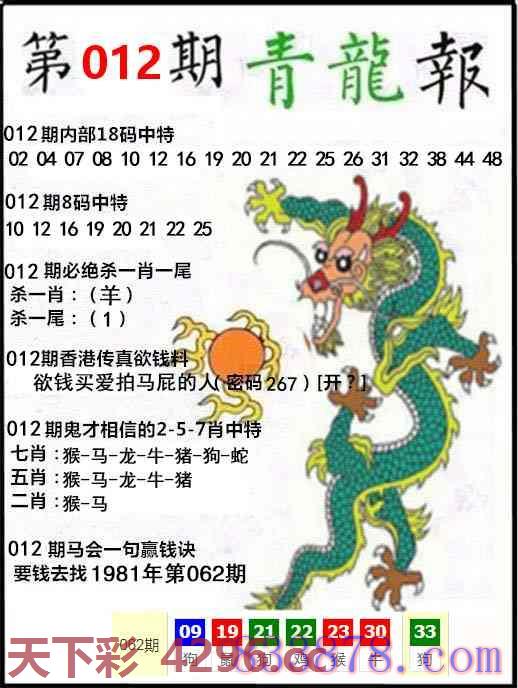 第012期 青龍報
012期内部18码中特
02 04 07 08 10 12 16 19 20 21 22 25 26 31 32 38 44 48
012期8码中特
10 12 16 19 20 21 22 25
012期必绝杀一肖一尾
杀一肖：（羊）
杀一尾：（1）
012期香港传真欲钱料
欲钱买爱拍马屁的人(密码267)[开？]
012期鬼才相信的2-5-7肖中特
七肖：猴-马-龙-牛-猪-狗-蛇
五肖：猴-马-龙-牛-猪
二肖：猴-马
012期马会一句赢钱诀
要钱去找1981年第062期
09 19 21 22 23 30 33
062期 狗 鼠 狗 鸡 猴 牛 狗
天下彩 4296.cc